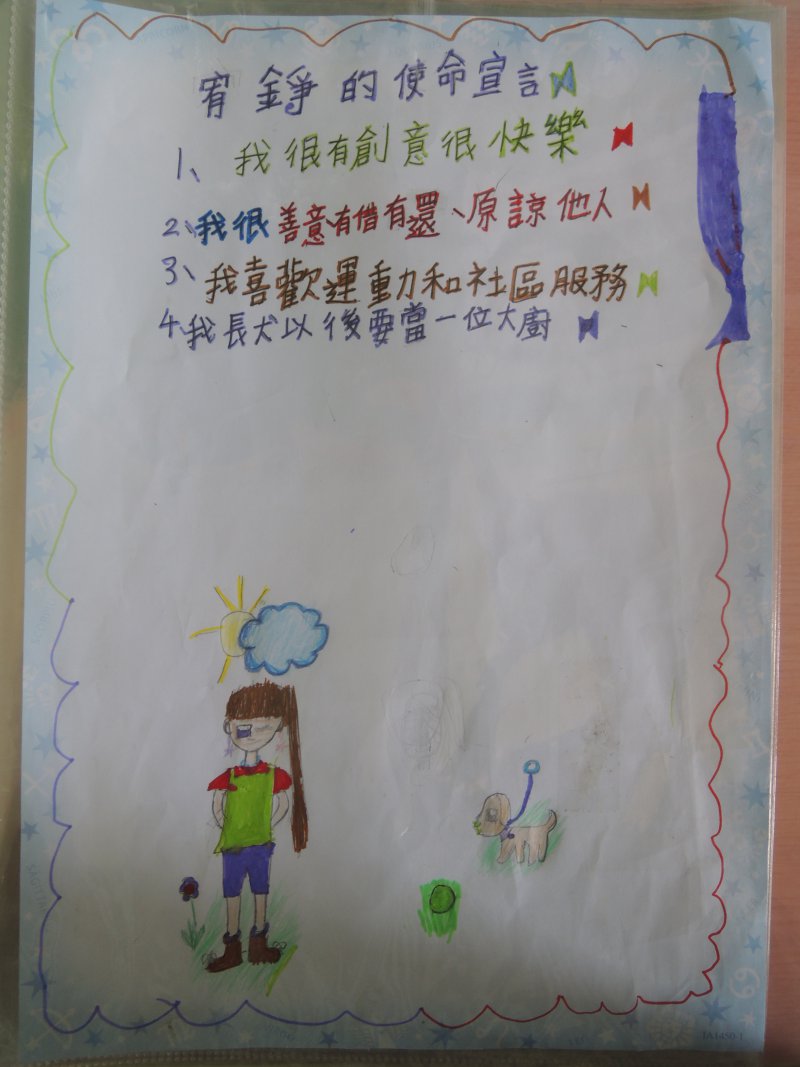 宥錚的使命宣言
1、我很有創意很快樂
2、我很善意有借有還、原諒他人
3、我喜歡運動和社區服務
4、我長大以後要當一位大廚
TA1450-1